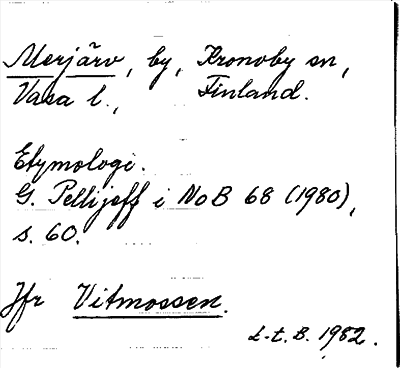 Merjärv, by, Kronoby sn,
Vasa l., Finland.
Etymologi.
G. Pellijeff i NoB 68 (1980),
s. 60.
Jfr Vitmossen.
L-t. B. 1982.